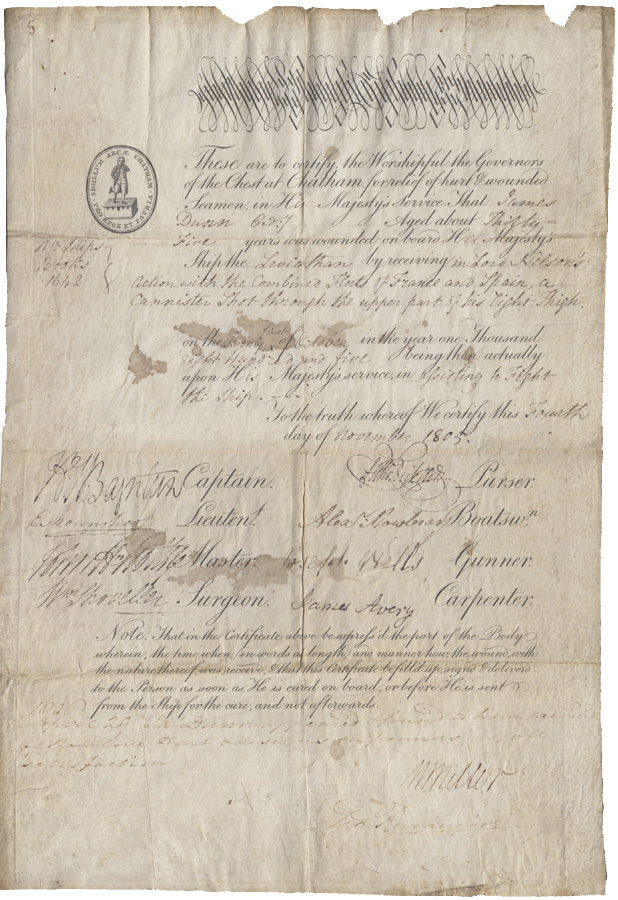 5
SIGILLUM ARCÆ CHATHAM
PRO REGE ET PATRIA
These are to certify the Worshipful the Governors
of the Chest at Chatham, for relief of hurt & wounded
Seamen, in His Majesty's Service That James
Dunn Ord.y Aged about Thirty-
Five years was wounded on board His Majesty's
No Ships
Books
1642
Ship the Leviathan by receiving in Lord Nelson's
Action with the Combined Fleets of France and Spain, a
Cannister Shot through the upper part of his Right Thigh.
on the of in the year one Thousand
Eight Hundred and five being then actually
upon His Majesty's service, in assisting to Fight
the Ship.
To the truth whereof We certify this Fourth
day of November 1805.
Hy. W. Bayntun Captain. Purser.
Lieuten.t Alex.r Boatsw.n
Master. Joseph Wells Gunner.
Wm Shoveller Surgeon. James Avery Carpenter.
Note. That in the Certificate above be express'd the part of the Body
wherein, the time when, in words at length, and manner how the wound, with
the nature thereof was receiv'd, & that this Certificate be fill'd up, sign'd & deliver'd
to the Person as soon as He is cured on board, or before He is sent
from the Ship for the cure, and not afterwards.
April 29 Dunn appeared
satisfaction
W Miller